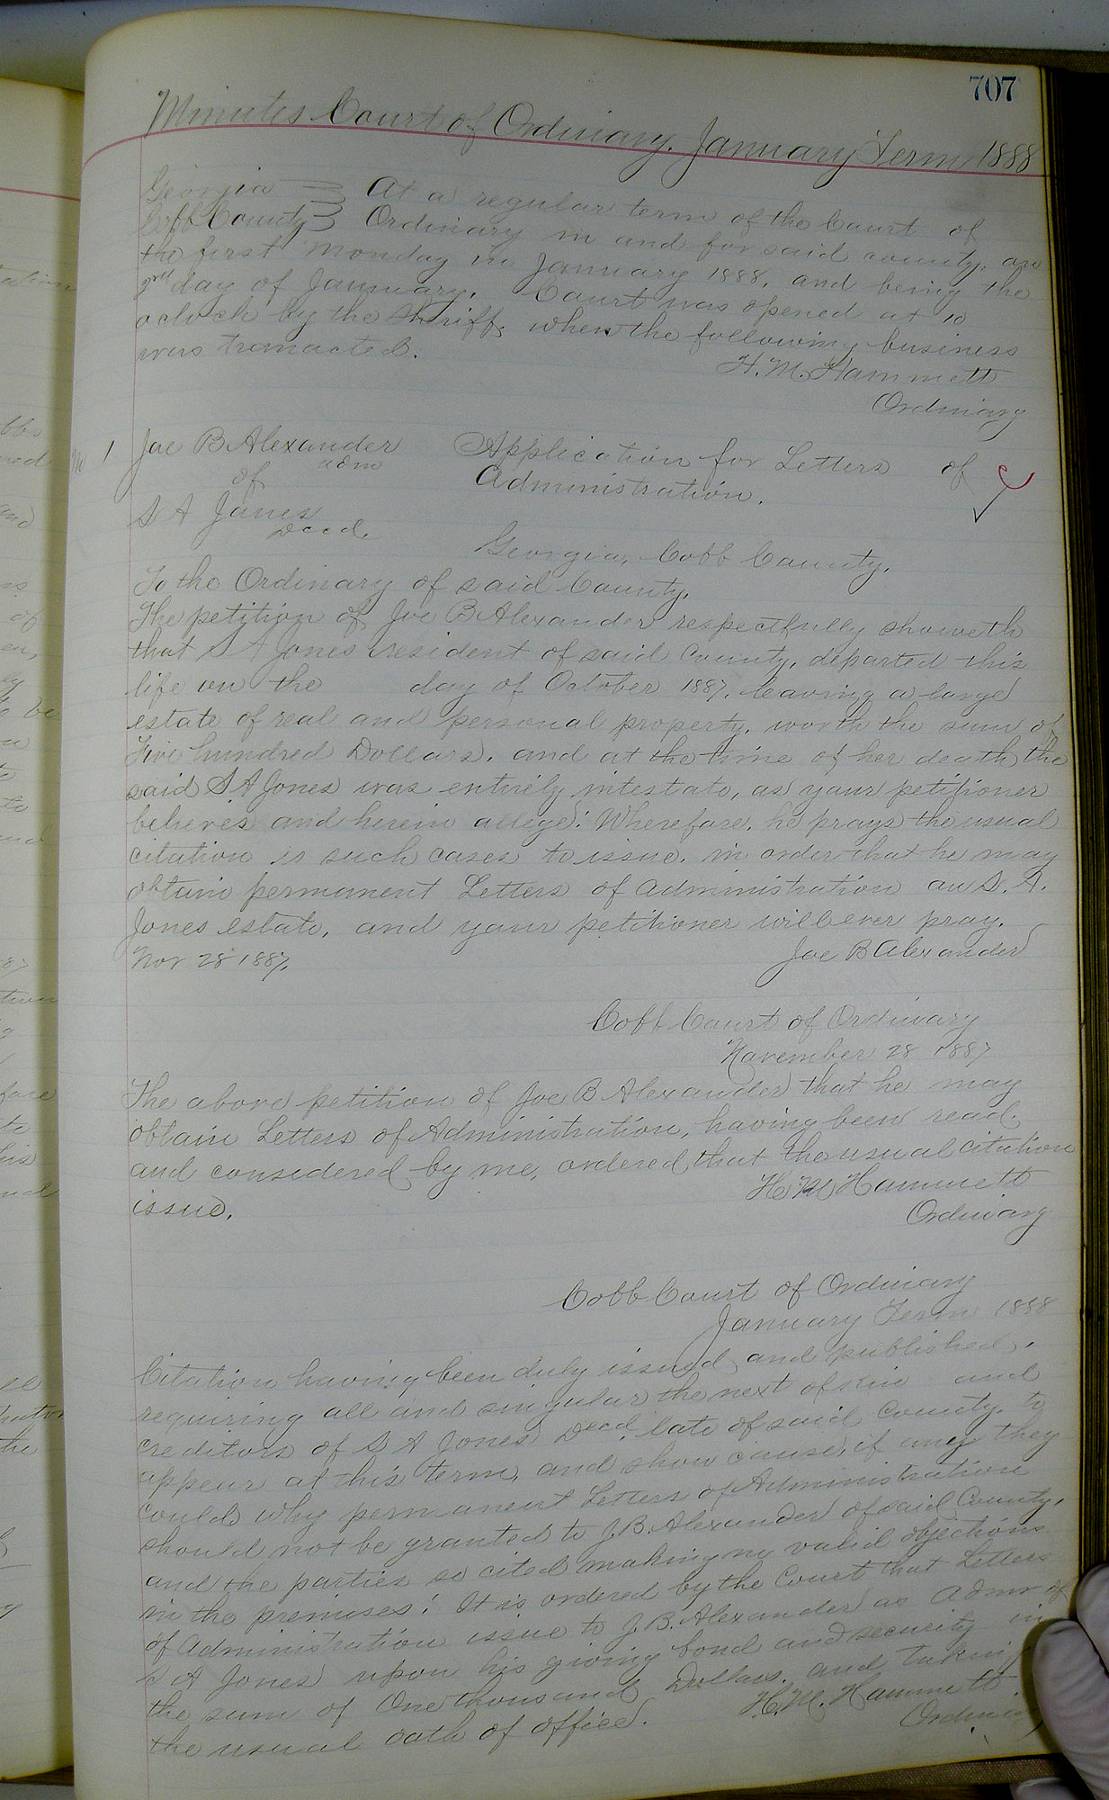 707
Minutes Court of Ordinary, January Term 1888
Georgia } At a regular term of the Court of
Cobb County } Ordinary in and for said county, on
the first Monday in January 1888, and being the
2nd day of January. Court was opened at 10
oclock by the Sheriff, when the following business
was transacted.
H. M. Hammett
Ordinary
No 1 Joe B Alexander Application for Letters of
adm Administration.
of
S A Jones
Decd.
Georgia, Cobb County.
To the Ordinary of said County.
The petition of Joe B Alexander respectfully showeth
that S A Jones resident of said County, departed this
life on the day of October 1887, leaving a large
estate of real and personal property, worth the sum of
Five hundred Dollars, and at the time of her death the
said S. A Jones was entirely intestate, as your petitioner
believes and herein allege: Wherefore, he prays the usual
citation is such cases to issue, in order that he may
obtain permanent Letters of administration on S. A.
Jones estate, and your petitioner will ever pray.
Nov 28 1887. Joe B Alexander
Cobb Court of Ordinary
November 28 1887
The above petition of Joe B Alexander that he may
obtain Letters of Administration, having been read
and considered by me, ordered that the usual citation
issue. H M Hammett
Ordinary
Cobb Court of Ordinary
January Term 1888
Citation having been duly issued and published,
requiring all and singular the next of kin and
creditors of S A Jones Decd. late of said County, to
appear at this term, and show cause, if any they
could, why permanent Letters of Administration
should not be granted to J. B. Alexander of said County,
and the parties so cited making no valid objections
in the premises: It is ordered by the Court that Letters
of administration issue to J. B. Alexander as Admr of
S A Jones upon his giving bond and security in
the sum of One thousand Dollars, and taking
the usual oath of office. H. M. Hammett
Ordinary